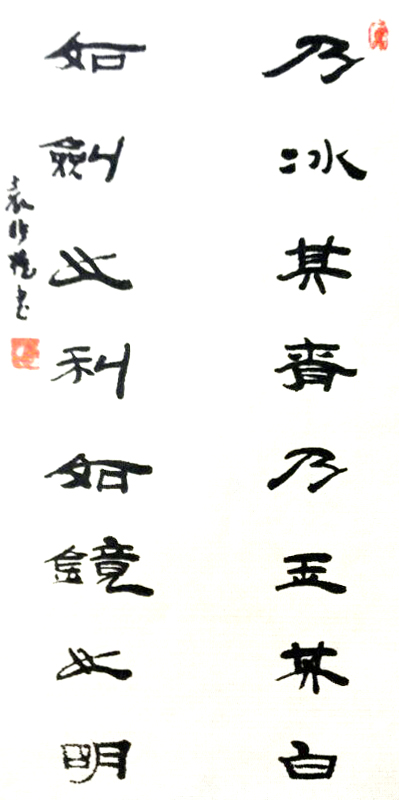 乃冰其齊乃玉其白
如劍之利如鏡之明
袁 書